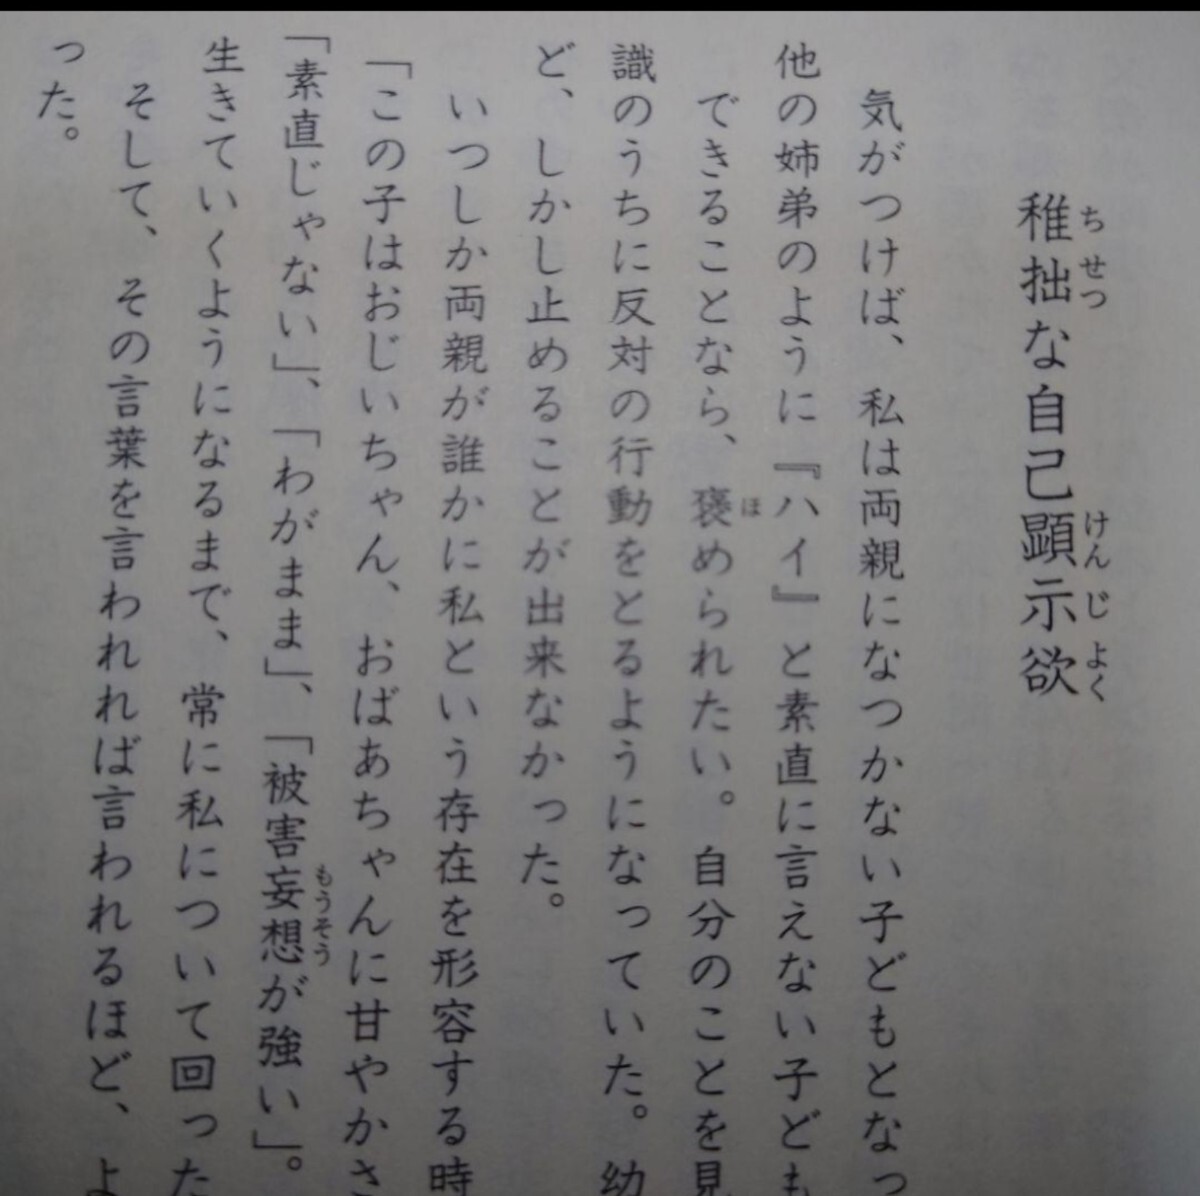 稚拙な自己顕示欲
気がつけば、私は両親になつかない子どもとなっ
他の姉弟のように『ハイ』と素直に言えない子ども
できることなら、褒められたい。自分のことを見
識のうちに反対の行動をとるようになっていた。幼
ど、しかし止めることが出来なかった。
いつしか両親が誰かに私という存在を形容する時
「この子はおじいちゃん、おばあちゃんに甘やかさ
「素直じゃない」、「わがまま」、「被害妄想が強い」。
生きていくようになるまで、常に私について回った
そして、その言葉を言われれば言われるほど、よ
った。